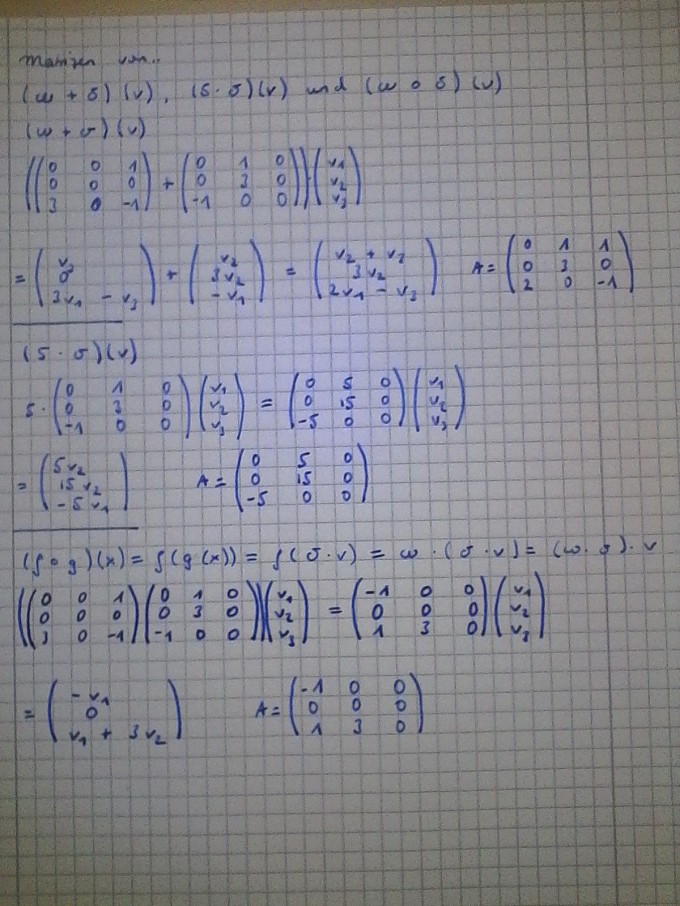 Matrizen von..
(w + σ)(v), (5·σ)(v) und (w ∘ σ)(v)
(w + σ)(v)
((0 0 1; 0 0 0; 3 0 -1) + (0 1 0; 0 3 0; -1 0 0)) (v₁; v₂; v₃)
= (v₃; 0; 3v₁ - v₃) + (v₂; 3v₂; -v₁) = (v₂ + v₃; 3v₂; 2v₁ - v₃) A = (0 1 1; 0 3 0; 2 0 -1)
(5·σ)(v)
5·(0 1 0; 0 3 0; -1 0 0)(v₁; v₂; v₃) = (0 5 0; 0 15 0; -5 0 0)(v₁; v₂; v₃)
= (5v₂; 15v₂; -5v₁) A = (0 5 0; 0 15 0; -5 0 0)
(f∘g)(x) = f(g(x)) = f(σ·v) = w·(σ·v) = (w·σ)·v
((0 0 1; 0 0 0; 3 0 -1)(0 1 0; 0 3 0; -1 0 0))(v₁; v₂; v₃) = (-1 0 0; 0 0 0; 1 3 0)(v₁; v₂; v₃)
= (-v₁; 0; v₁ + 3v₂) A = (-1 0 0; 0 0 0; 1 3 0)